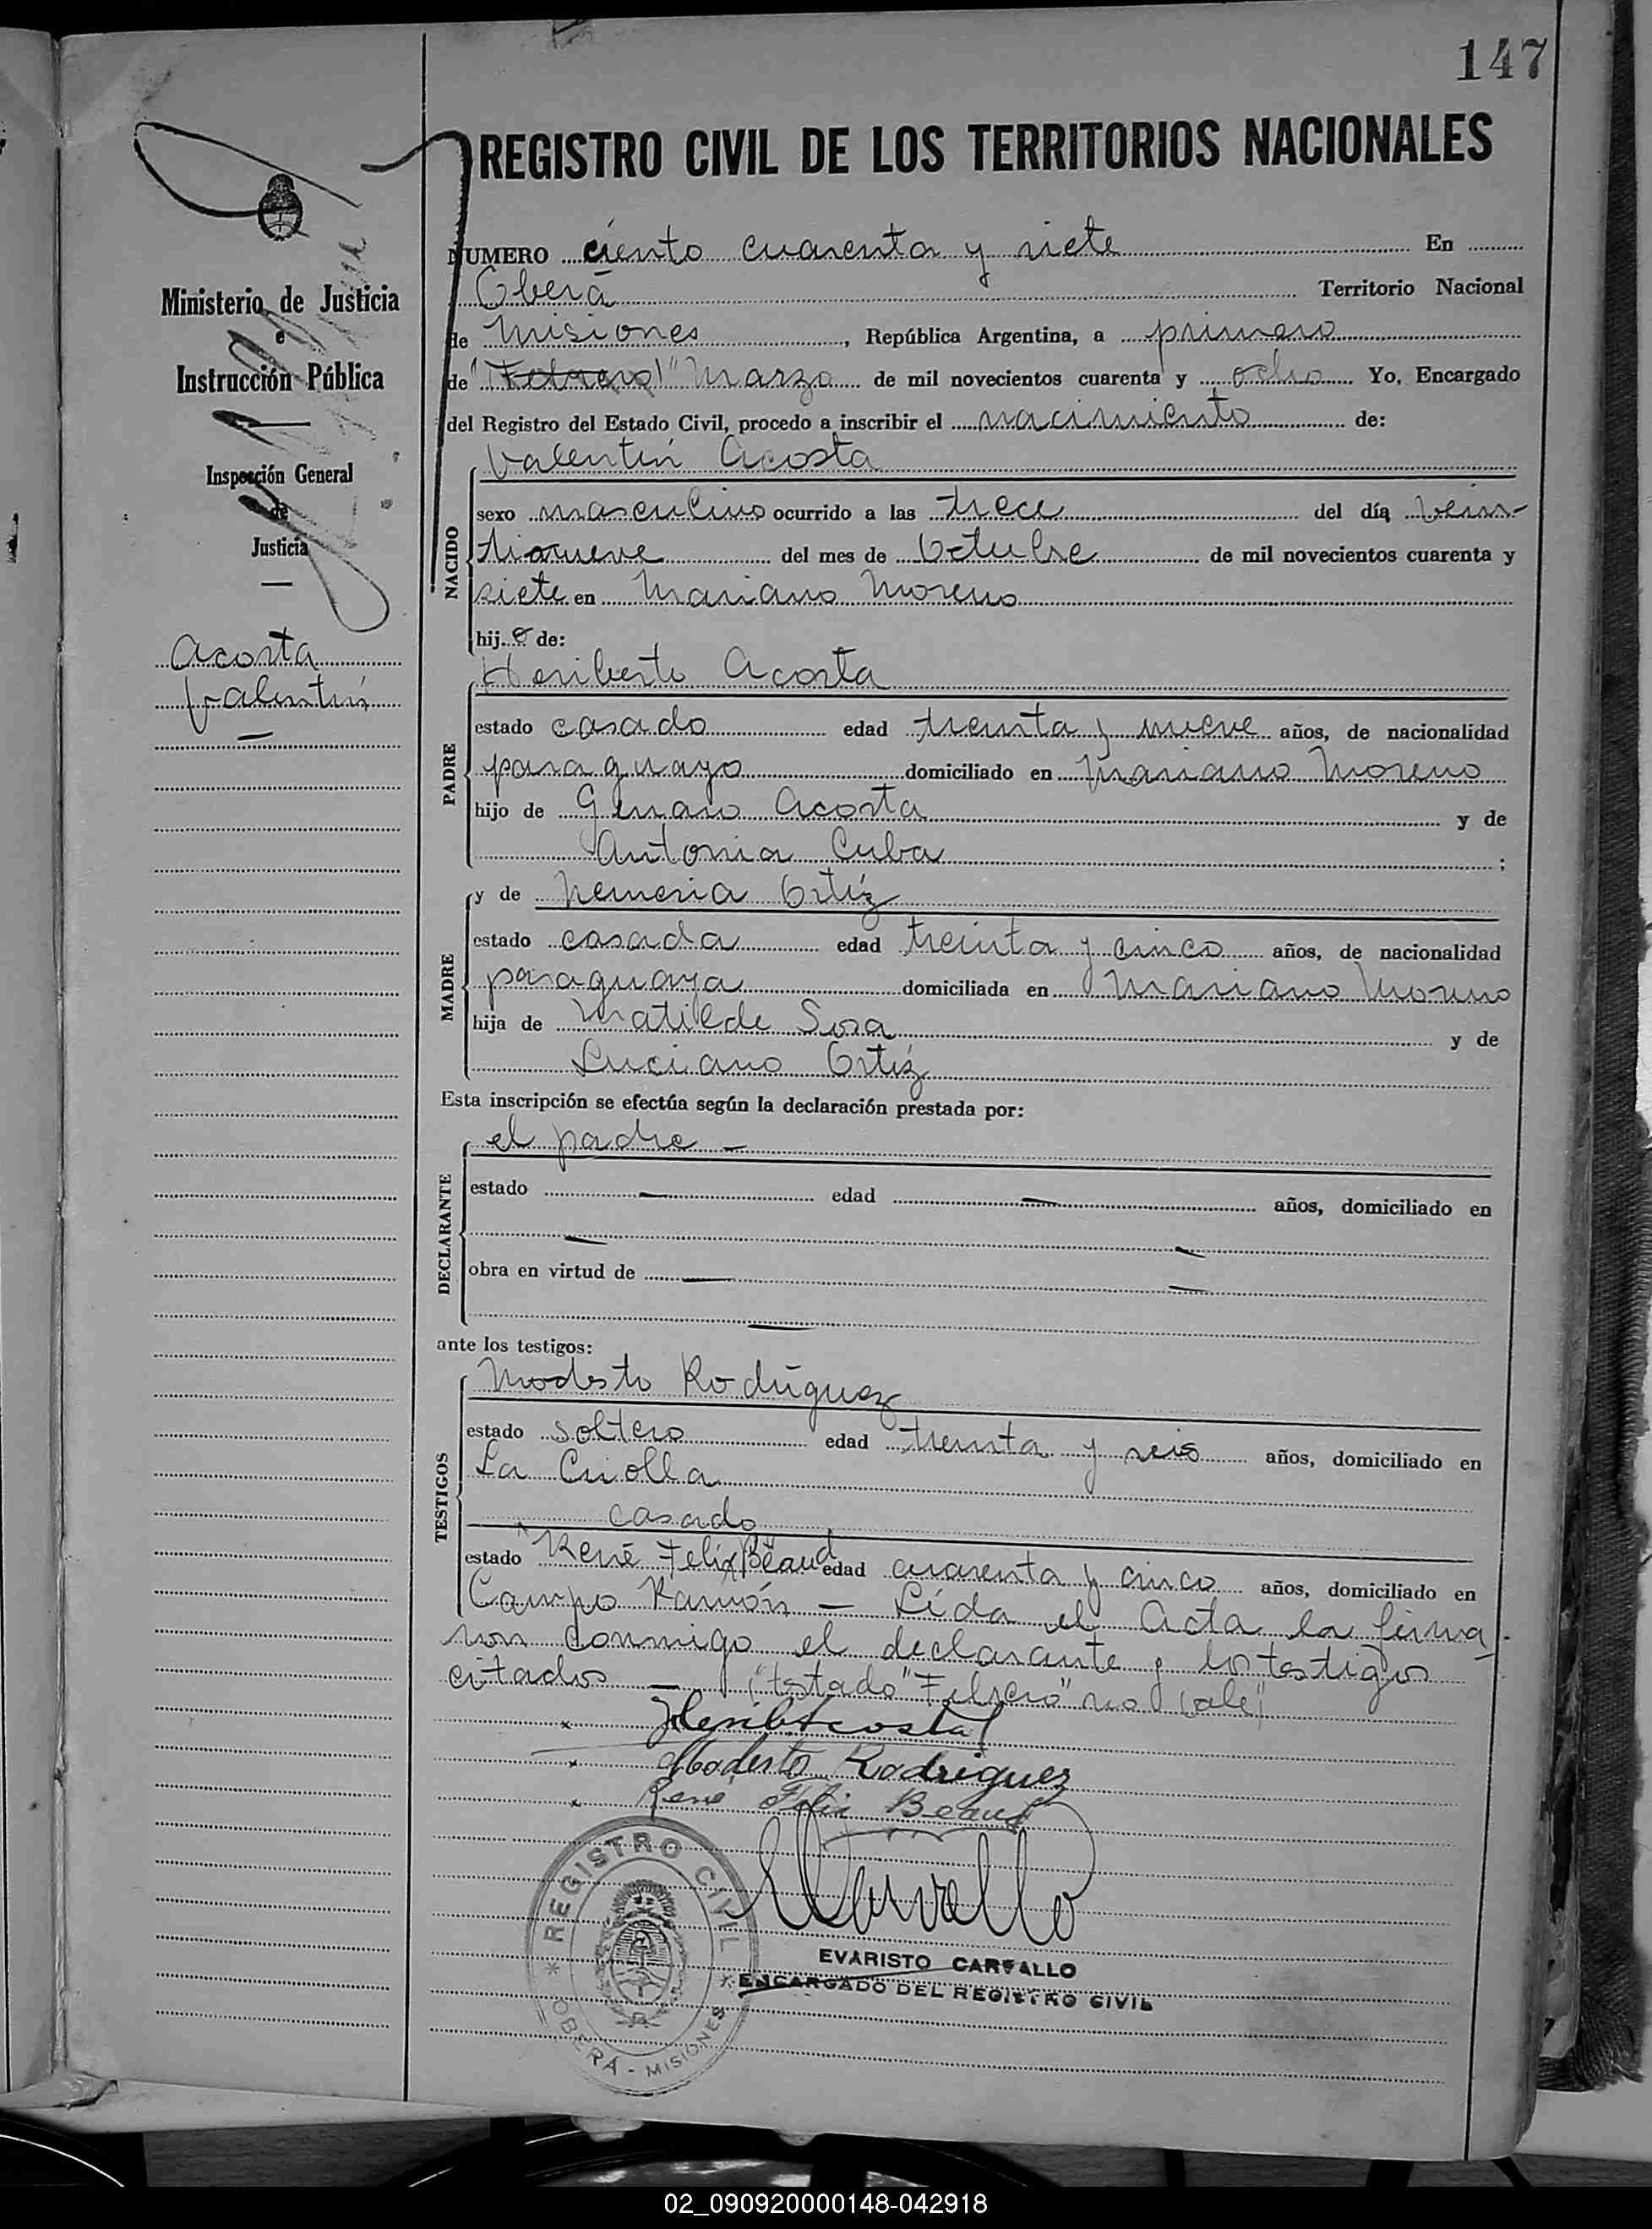 147
REGISTRO CIVIL DE LOS TERRITORIOS NACIONALES
Ministerio de Justicia
e
Instrucción Pública
Inspección General
de
Justicia
Acosta
Valentín
NUMERO ciento cuarenta y siete En
Oberá Territorio Nacional
de Misiones, República Argentina, a primero
de "(Febrero)" Marzo de mil novecientos cuarenta y ocho Yo, Encargado
del Registro del Estado Civil, procedo a inscribir el nacimiento de:
NACIDO
Valentín Acosta
sexo masculino ocurrido a las trece del día vein-
tinueve del mes de Octubre de mil novecientos cuarenta y
siete en Mariano Moreno
hijo de:
PADRE
Heriberto Acosta
estado casado edad treinta y nueve años, de nacionalidad
paraguayo domiciliado en Mariano Moreno
hijo de Genaro Acosta y de
Antonia Cuba ;
MADRE
y de Nemesia Ortíz
estado casada edad treinta y cinco años, de nacionalidad
paraguaya domiciliada en Mariano Moreno
hija de Matilde Sosa y de
Luciano Ortíz
Esta inscripción se efectúa según la declaración prestada por:
DECLARANTE
el padre —
estado — edad — años, domiciliado en
obra en virtud de —
ante los testigos:
TESTIGOS
Modesto Rodríguez
estado soltero edad treinta y seis años, domiciliado en
La Criolla
casado
estado René Felix Beaud edad cuarenta y cinco años, domiciliado en
Campo Ramón — Leída el Acta la firma
ron conmigo el declarante y los testigos
citados — ("testado" Febrero" no vale")
Herib Acosta
Modesto Rodriguez
René Felix Beaud
ECarvallo
REGISTRO CIVIL
* OBERÁ - MISIONES *
EVARISTO CARVALLO
ENCARGADO DEL REGISTRO CIVIL
02_090920000148-042918